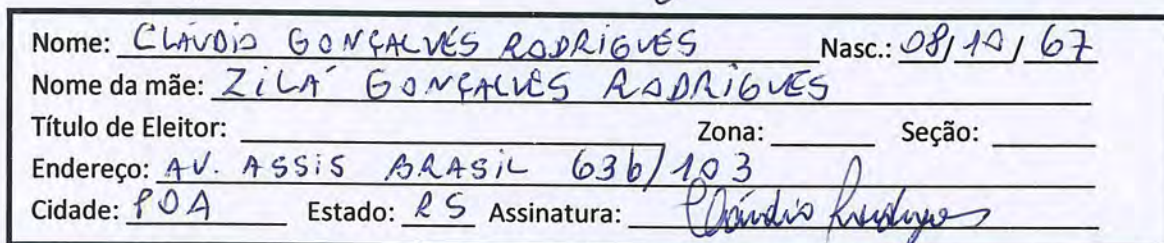 Nome: CLÁUDIO GONÇALVES RODRIGUES Nasc.: 08/10/67
Nome da mãe: ZILÁ GONÇALVES RODRIGUES
Título de Eleitor: Zona: Seção:
Endereço: AV. ASSIS BRASIL 636/103
Cidade: POA Estado: RS Assinatura: Cláudio Rodrigues